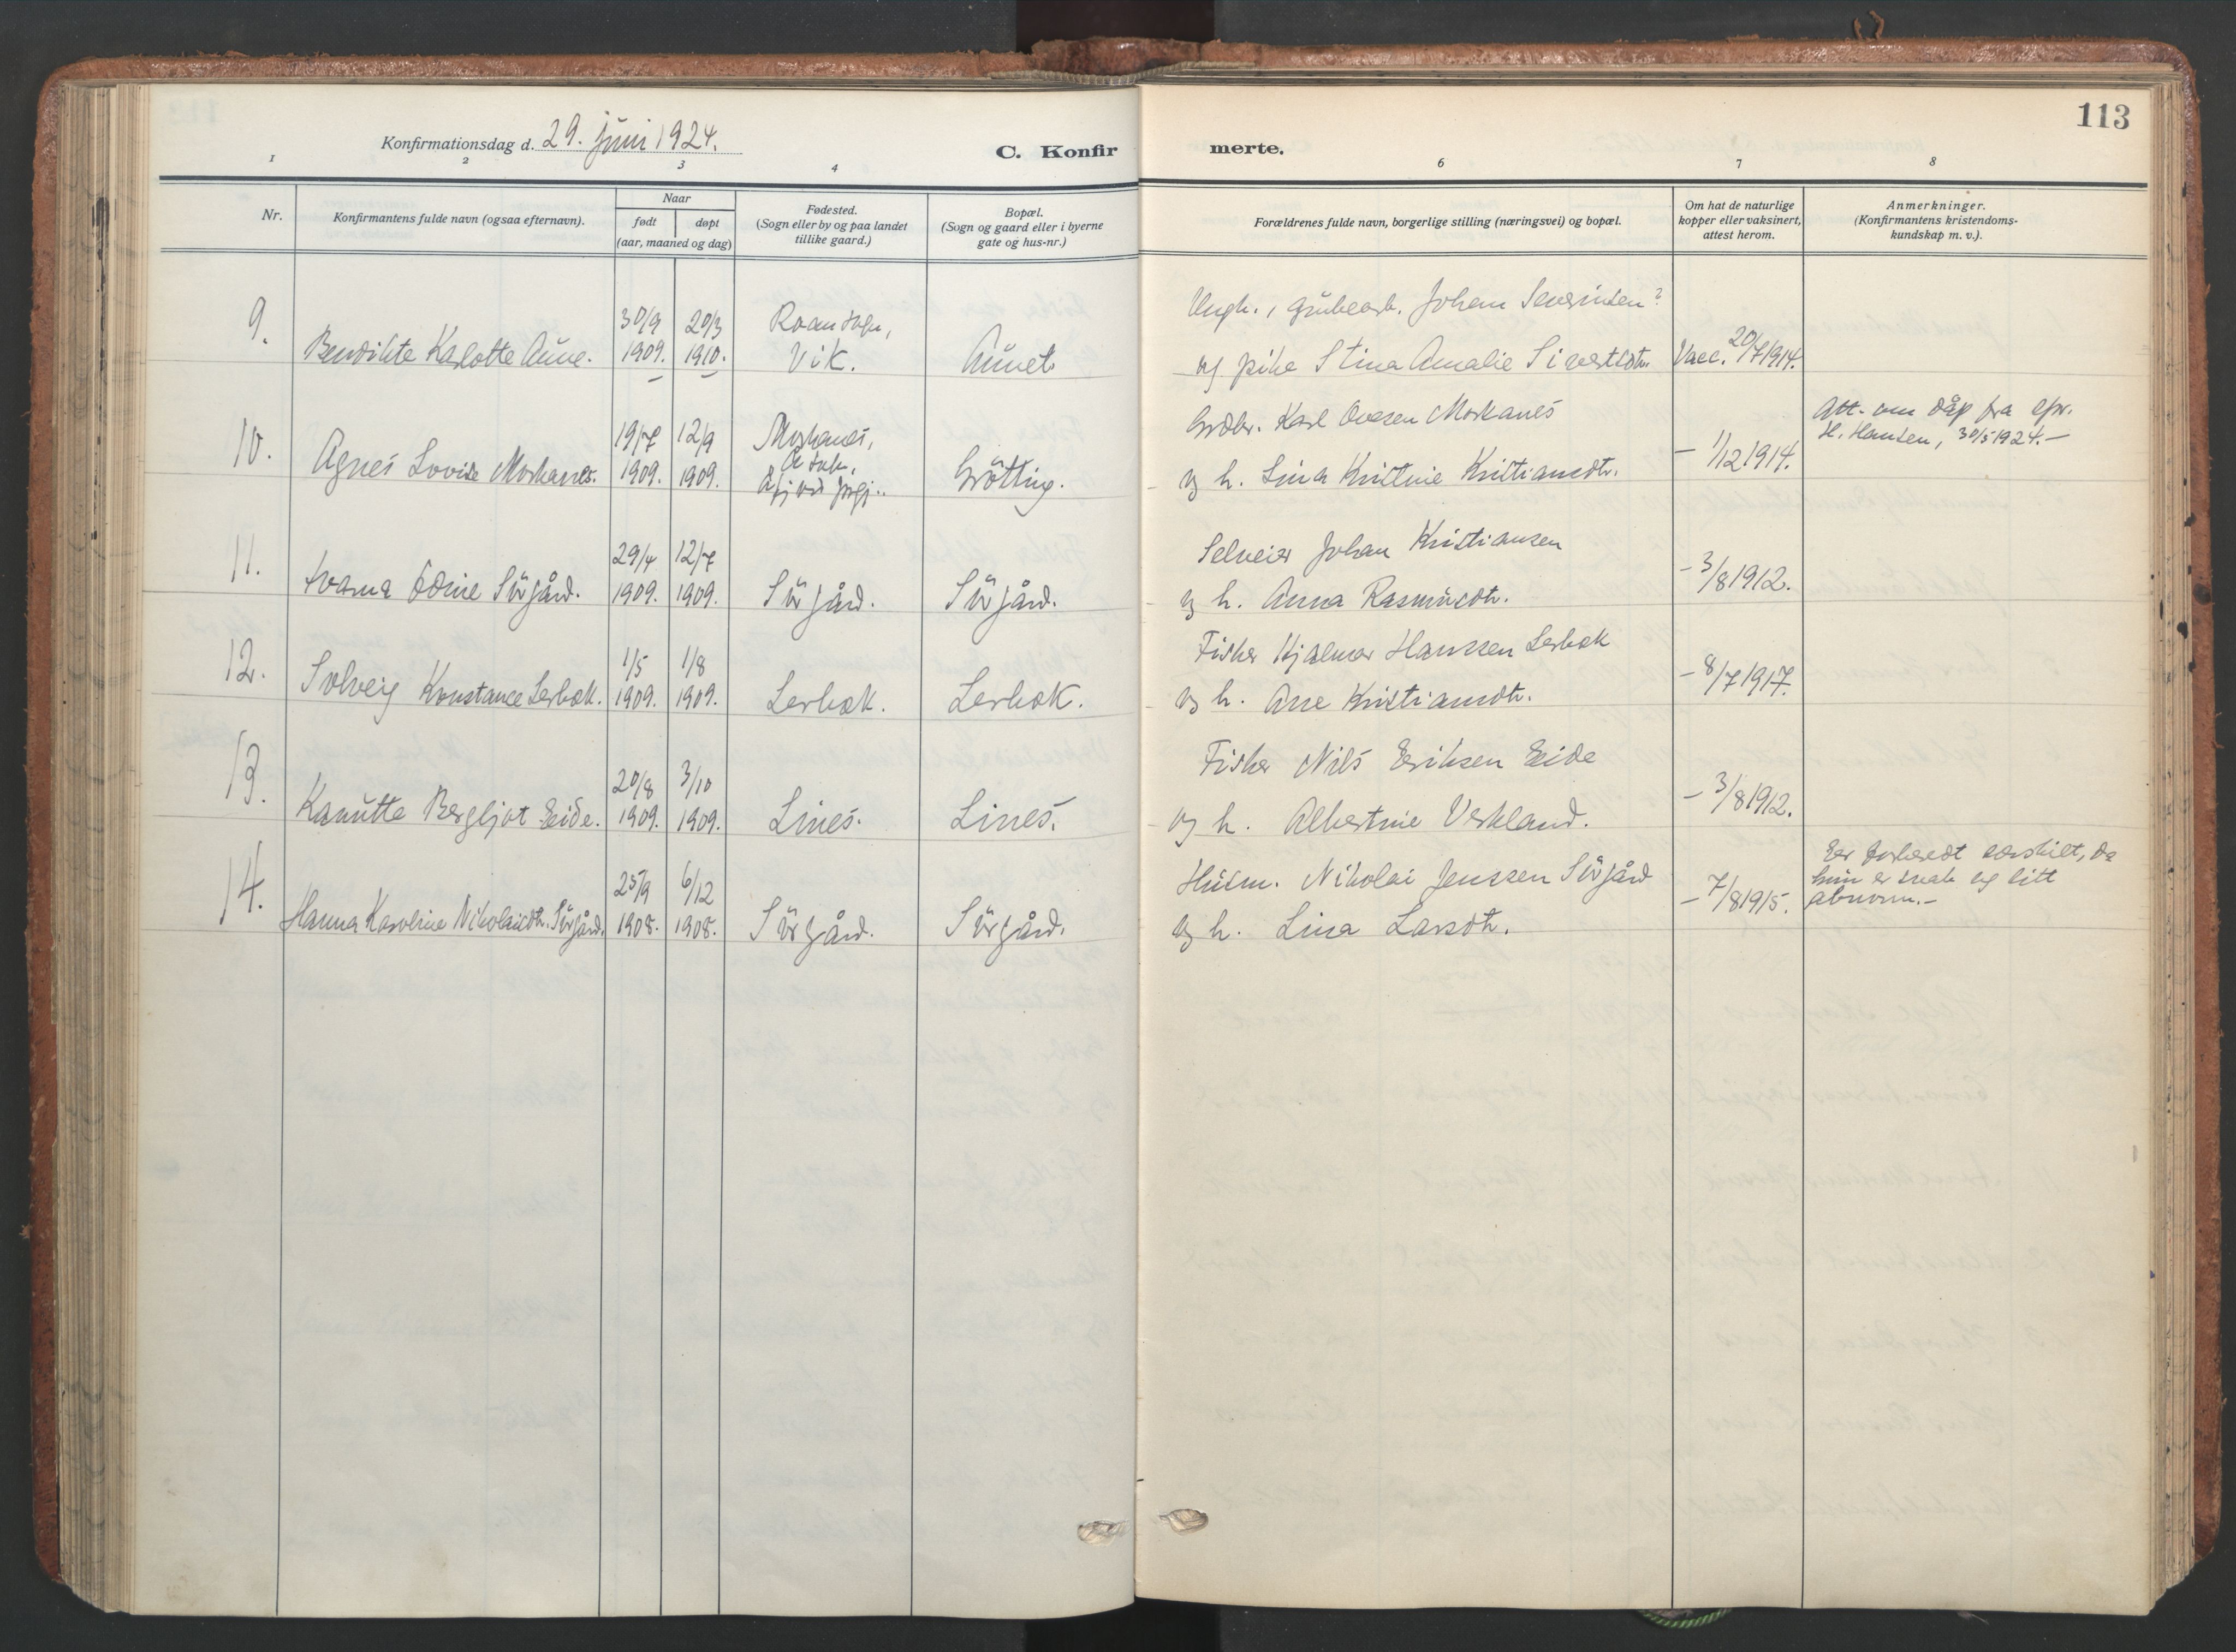 113
Konfirmationsdag d. 29. juni 1924.
C. Konfirmerte.
1 2 3 4 6 7 8
Nr.
Konfirmantens fulde navn (ogsaa efternavn).
Naar
født døpt
(aar, maaned og dag)
Fødested.
(Sogn eller by og paa landet
tillike gaard.)
Bopæl.
(Sogn og gaard eller i byerne
gate og hus-nr.)
Forældrenes fulde navn, borgerlige stilling (næringsvei) og bopæl.
Om hat de naturlige
kopper eller vaksinert,
attest herom.
Anmerkninger.
(Konfirmantens kristendoms-
kundskap m. v.).
9.
Bendikte Karlotte Aune.
30/9 20/3
1909. 1910.
Roan sogn,
Vik.
Aunet
Ungk., grubearb. Johan Severinsen?
og pike Stina Amalie Sivertsdtr.
Vacc. 20/7 1914.
10.
Agnes Lovise Moskanes.
19/7 12/9
1909. 1909.
Moskanes,
Grötting.
Grdbr. Karl Ovesen Moskanes
og h. Lina Kristine Kristiansdtr.
- 1/12 1914.
Att. om dåp fra spr.
H. Hansen, 30/5 1924. -
11.
Odine Sörgård.
29/4 12/7
1909. 1909.
Sörgård.
Sörgård.
Selveier Johan Kristiansen
og h. Anna Rasmusdtr.
- 3/8 1912.
12.
Solveig Konstance Lerbæk.
1/5 1/8
1909. 1909.
Lerbæk.
Lerbæk.
Fisker Hjalmar Hanssen Lerbæk
og h. Ane Kristiansdtr.
- 8/7 1917.
13.
Kanutte Bergljot Eide.
20/8 3/10
1909. 1909.
Lines.
Lines.
Fisker Nils Eriksen Eide
og h. Albertine Verkland.
- 3/8 1912.
14.
Hanna Karoline Nikolaisdtr. Sörgård.
25/9 6/12
1908. 1908.
Sörgård.
Sörgård.
Husm. Nikolai Jenssen Sörgård
og h. Lina Larsdtr.
- 7/8 1915.
Er forberedt særskilt, da
hun er svak og litt
abnorm. -